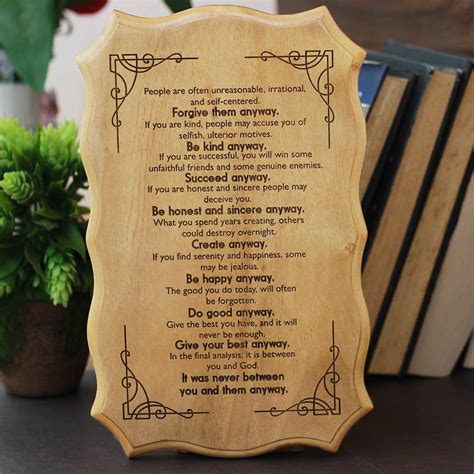 People are often unreasonable, irrational,
and self-centered.
Forgive them anyway.
If you are kind, people may accuse you of
selfish, ulterior motives.
Be kind anyway.
If you are successful, you will win some
unfaithful friends and some genuine enemies.
Succeed anyway.
If you are honest and sincere people may
deceive you.
Be honest and sincere anyway.
What you spend years creating, others
could destroy overnight.
Create anyway.
If you find serenity and happiness, some
may be jealous.
Be happy anyway.
The good you do today, will often
be forgotten.
Do good anyway.
Give the best you have, and it will
never be enough.
Give your best anyway.
In the final analysis, it is between
you and God.
It was never between
you and them anyway.